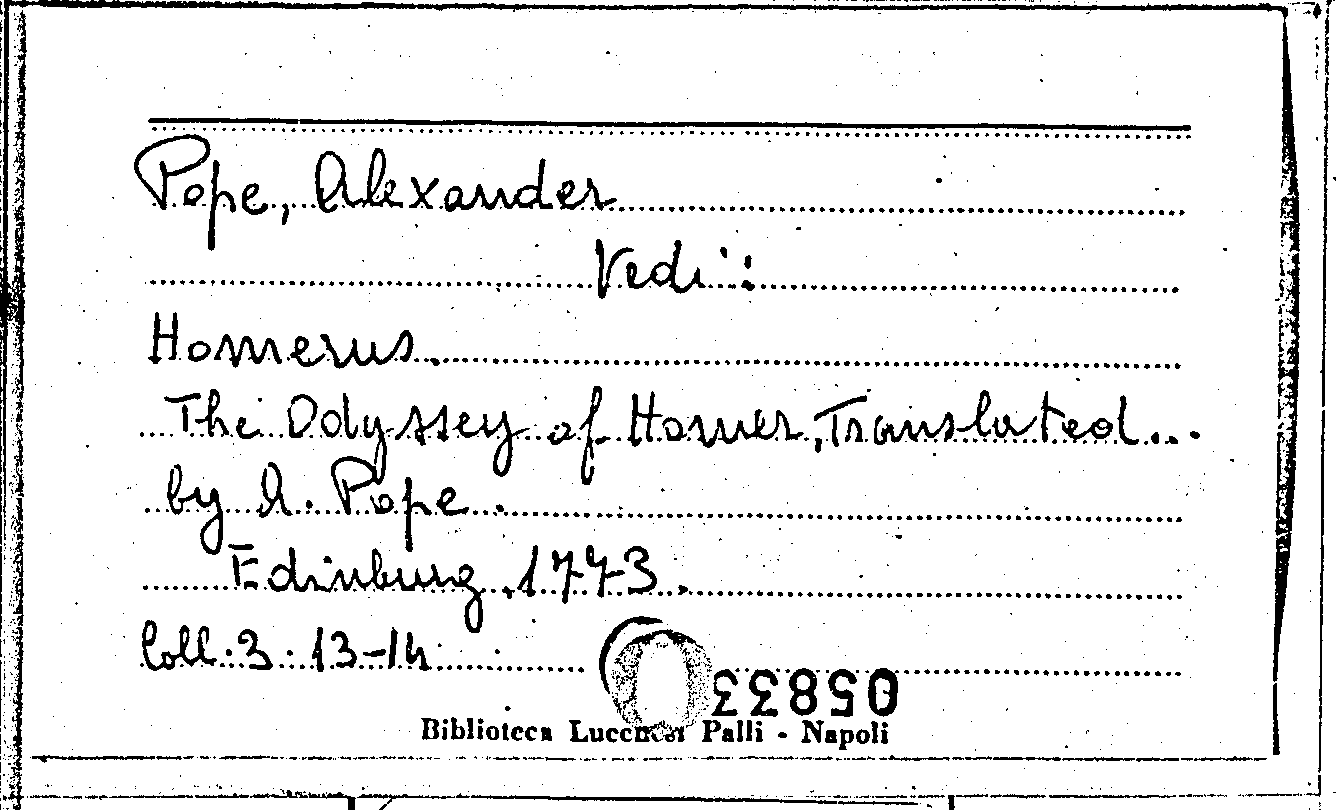 Pope, Alexander
Vedi:
Homerus.
The Odyssey of Homer, Translated...
by A. Pope.
Edinburg, 1773.
Coll. 3. 13-14
05833
Biblioteca Lucchesi Palli - Napoli